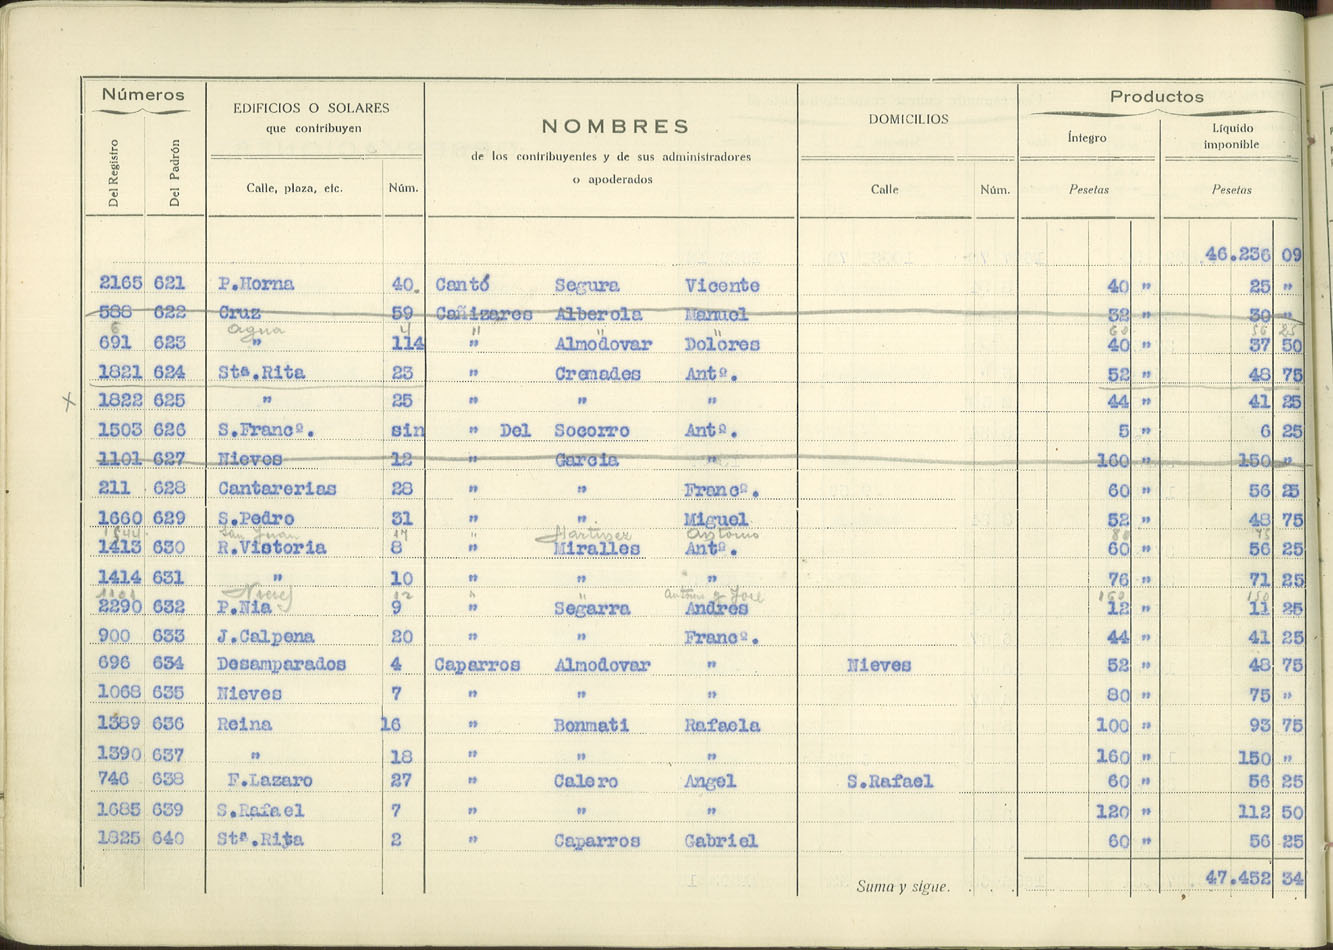 Números EDIFICIOS O SOLARES que contribuyen NOMBRES de los contribuyentes y de sus administradores o apoderados DOMICILIOS Productos
Del Registro Del Padrón Calle, plaza, etc. Núm. Calle Núm. Íntegro Pesetas Líquido imponible Pesetas
46.236 09
2165 621 P.Horna 40. Cantó Segura Vicente 40 " 25 "
588 622 Cruz 59 Cañizares Alberola Manuel 32 " 30 "
6 Agua 4 " " " 60 56 25
691 623 " 114 " Almodovar Dolores 40 " 37 50
1821 624 Stª.Rita 23 " Cremades Antº. 52 " 48 75
x 1822 625 " 25 " " " 44 " 41 25
1503 626 S.Francº. sin " Del Socorro Antº. 5 " 6 25
1101 627 Nieves 12 " Garcia " 160 " 150 "
211 628 Cantarerias 28 " " Francº. 60 " 56 25
1660 629 S.Pedro 31 " " Miguel 52 " 48 75
San Juan 14 " Martinez Antonio 80 75
1413 630 R.Victoria 8 " Miralles Antº. 60 " 56 25
1414 631 " 10 " " " 76 " 71 25
1101 Nieves 12 " " Antonio y José 160 150
2290 632 P.Nia 9 " Segarra Andres 12 " 11 25
900 633 J.Calpena 20 " " Francº. 44 " 41 25
696 634 Desamparados 4 Caparros Almodovar " Nieves 52 " 48 75
1068 635 Nieves 7 " " " 80 " 75 "
1389 636 Reina 16 " Bonmati Rafaela 100 " 93 75
1390 637 " 18 " " " 160 " 150 "
746 638 F.Lazaro 27 " Calero Angel S.Rafael 60 " 56 25
1685 639 S.Rafael 7 " " " 120 " 112 50
1825 640 Stª.Rita 2 " Caparros Gabriel 60 " 56 25
Suma y sigue. . . . 47.452 34